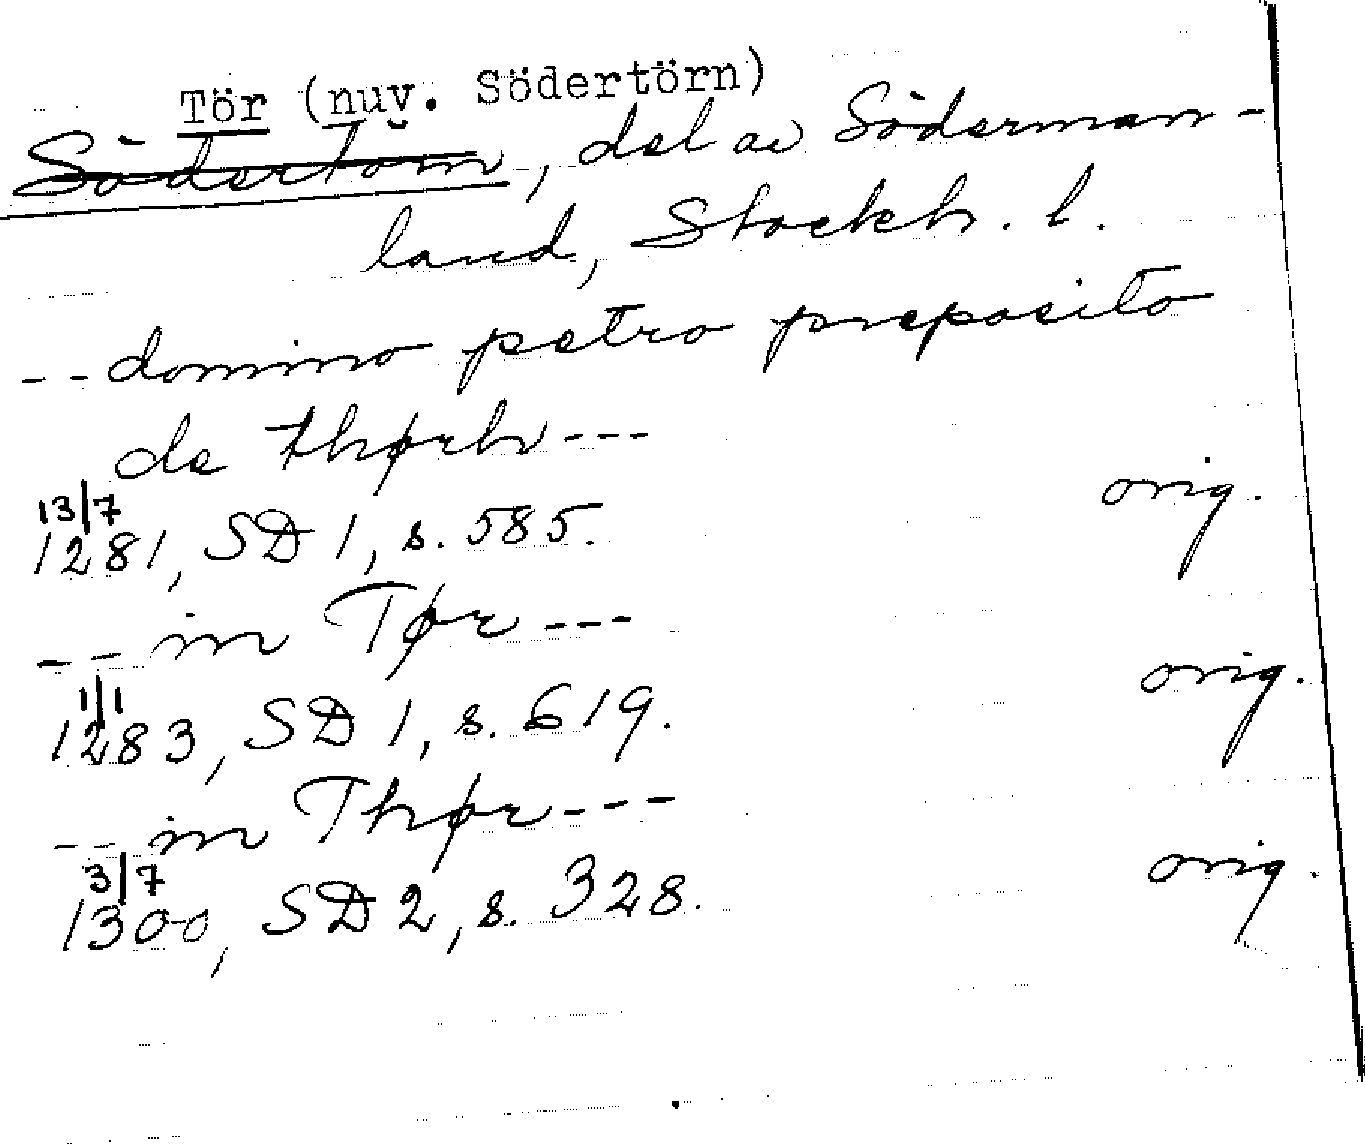 Tör (nuv. Södertörn)
Södertörn, del av Söderman-
land, Stockh. l.
-- domino petro preposito
de thørh ---
13/7
1281, SD 1, s. 585. orig.
-- in Tør ---
1/1
1283, SD 1, s. 619. orig.
-- in Thør ---
3/7
1300, SD 2, s. 328. orig.